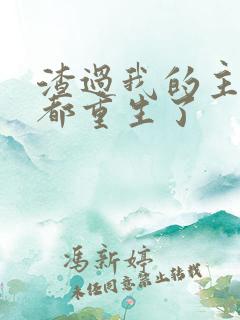 渣过我的主
都重生了
冯新婷
未经同意禁止转载